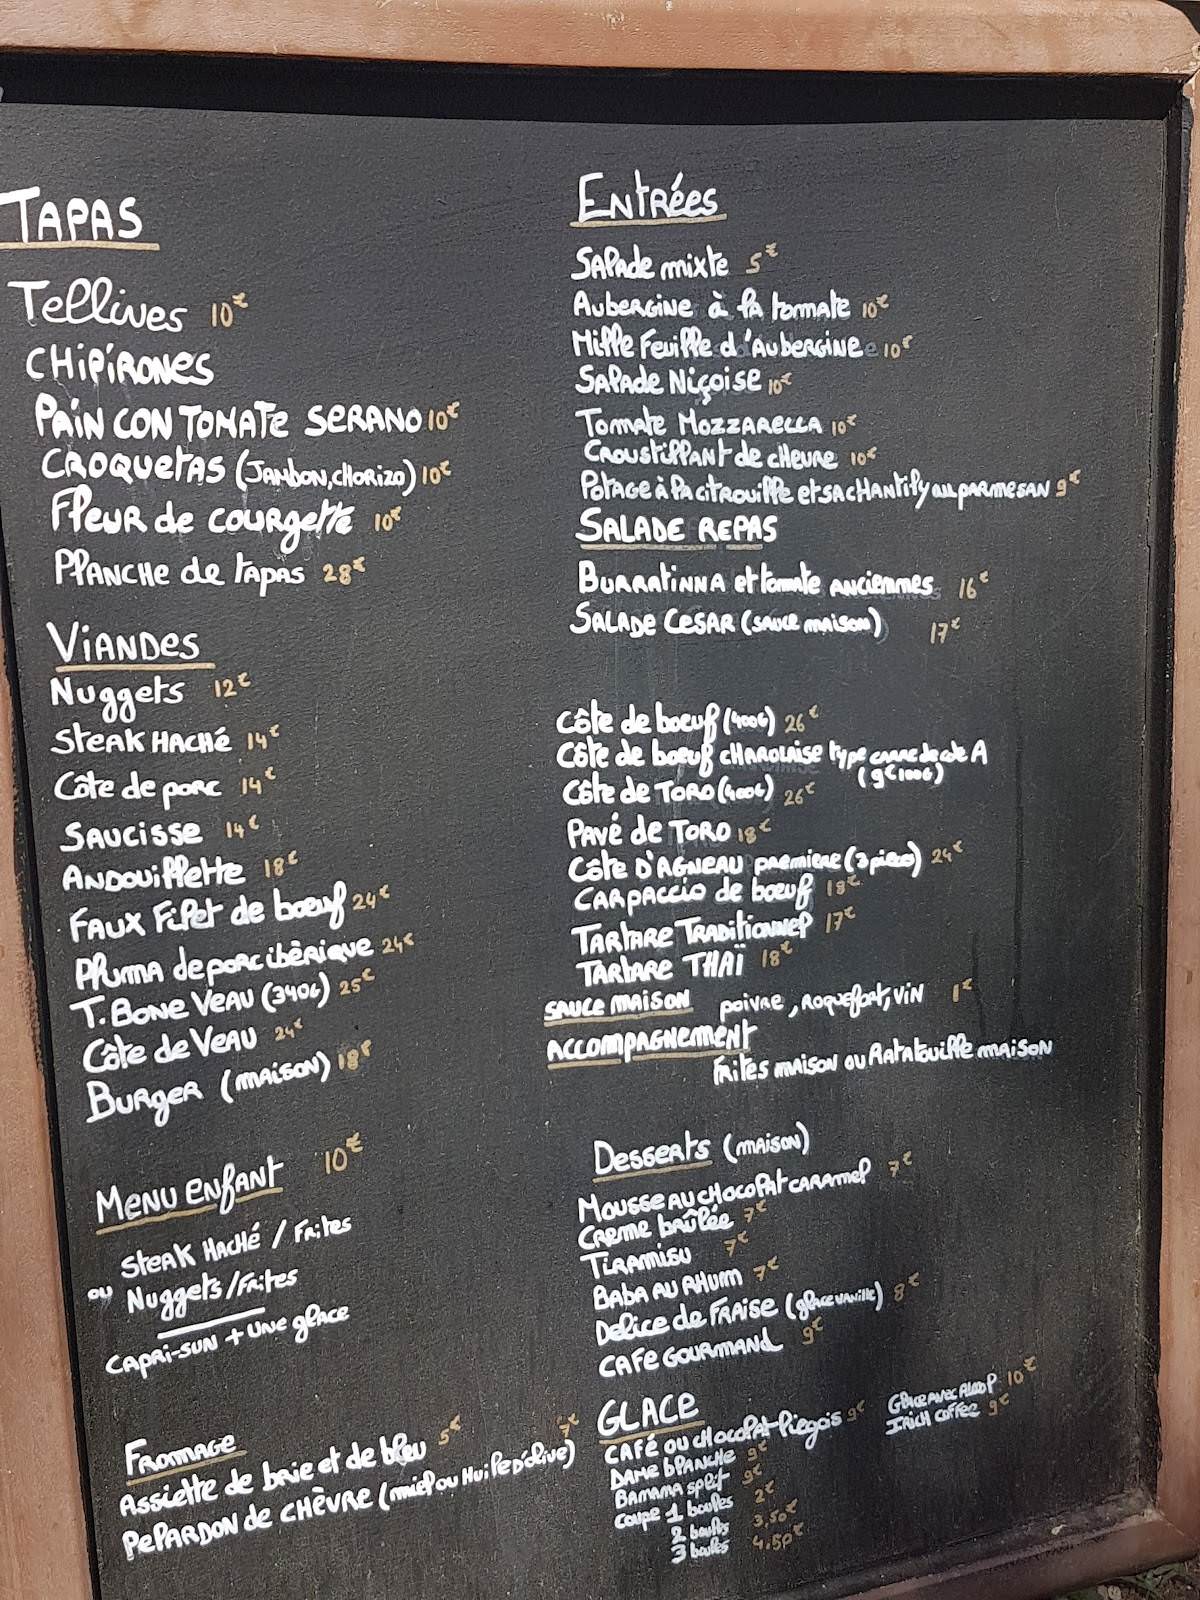 TAPAS
Tellines 10€
CHIPIRONES
PAIN CON TOMATE SERANO 10€
CROQUETAS (JAMBON, CHORIZO) 10€
Fleur de courgette 10€
PLANCHE de tapas 28€
VIANDES
Nuggets 12€
Steak HACHÉ 14€
Côte de porc 14€
SAUCISSE 14€
ANDOUILLETTE 18€
FAUX Filet de boeuf 24€
Pluma de porc ibèrique 24€
T.BONE VEAU (340G) 25€
Côte de VEAU 24€
BURGER (MAISON) 18€
MENU ENFANT 10€
Steak HACHÉ / FRites
ou Nuggets/FRites
CAPRI-SUN + UNE glace
FROMAGE
Assiette de brie et de bleu 5€
PELARDON de CHÈVRE (miel ou Huile D'olive) 7€
ENTRÉES
SALADE mixte 5€
AUBERGINE à la tomate 10€
Mille Feuille d'AUBERGINE 10€
SALADE Niçoise 10€
Tomate MOZZARELLA 10€
CROUSTILLANT de CHEVRE 10€
Potage à la citrouille et SA CHANTILLY au PARMESAN 9€
SALADE REPAS
BURRATINNA et tomate ANCIENNES 16€
SALADE CESAR (SAUCE MAISON) 17€
Côte de boeuf (400G) 26€
Côte de boeuf CHAROLAISE type
(9€100G)
Côte de TORO (400G) 26€
PAVÉ de TORO 18€
Côte D'AGNEAU PREMIERE (3 pieces) 24€
CARPACCIO de boeuf 18€
TARTARE TRADITIONNEL 17€
TARTARE THAÏ 18€
SAUCE MAISON poivre, ROQUEFORT, VIN 1€
ACCOMPAGNEMENT
FRites MAISON ou RATATOUILLE MAISON
DESSERTS (MAISON)
MOUSSE AU CHOCOLAT CARAMEL 7€
CREME BRÛLÉE 7€
TIRAMISU 7€
BABA AU RHUM 7€
DELICE de FRAISE (glace VANILLE) 8€
CAFE GOURMAND 9€
GLACE
CAFÉ OU CHOCOLAT LIEGOIS 9€
DAME BLANCHE 9€
BANANA split 9€
COUPE 1 boules 2€
2 boules 3,50€
3 boules 4,50€
GLACE AVEC ALCOOL 10€
IRICH COFFEE 9€